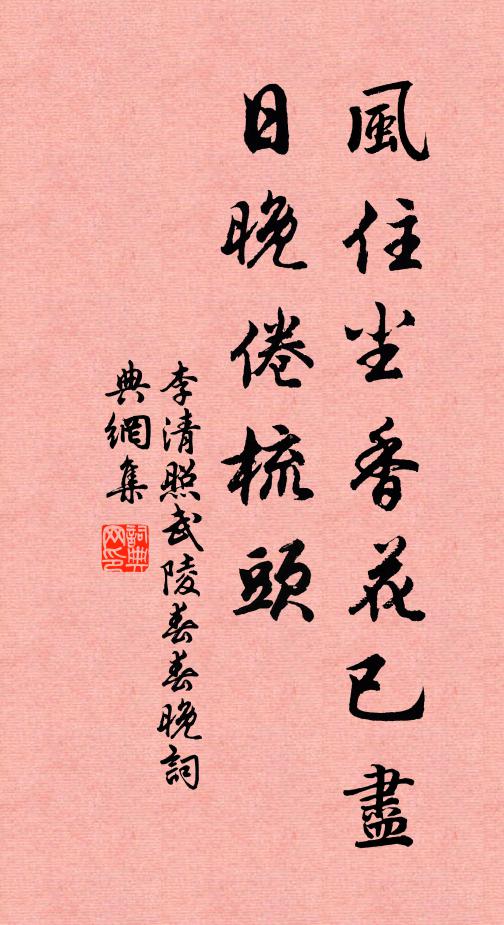 風住尘香花已盡
日晚倦梳頭
李清照武陵春春晚詞
典網集
詞典網印